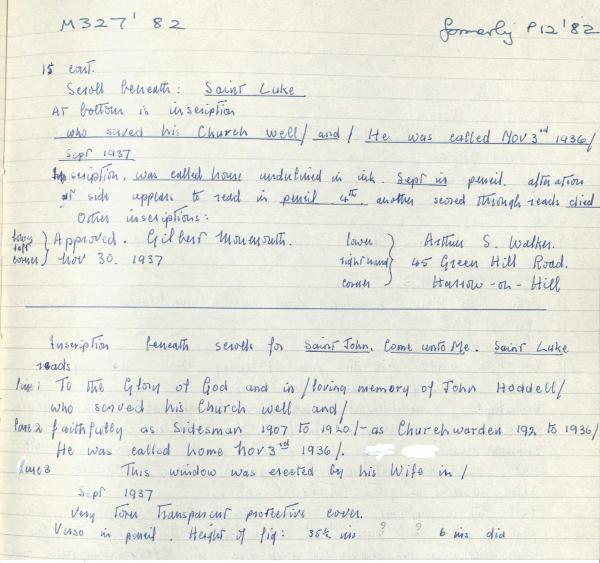 M327' 82 formerly P12 '82
15 cont.
Scroll beneath: Saint Luke
At bottom is inscription
who served his Church well/ and/ He was called Nov 3rd 1936/
Sept 1937
Inscription, was called home undulined in ink. Sept in pencil. alteration
at side appears to read in pencil 4th another scored through reads died
Other inscriptions:
lower left corner } Approved. Gilbert Monmouth. Nov 30. 1937
lower right hand corner } Arthur S. Walker. 45 Green Hill Road. Harrow-on-Hill
Inscription beneath scrolls for Saint John. Come unto Me. Saint Luke
reads
Line 1 To the Glory of God and in /loving memory of John Hoddell/
who served his Church well and/
Line 2 faithfully as Sidesman 1907 to 1920/- as Churchwarden 192 to 1936/
He was called home Nov 3rd 1936/.
Line 3 This window was erected by his Wife in /
Sept 1937
Very torn transparent protective cover.
Verso in pencil. Height of fig: 35½ ins ? ? 6 ins did